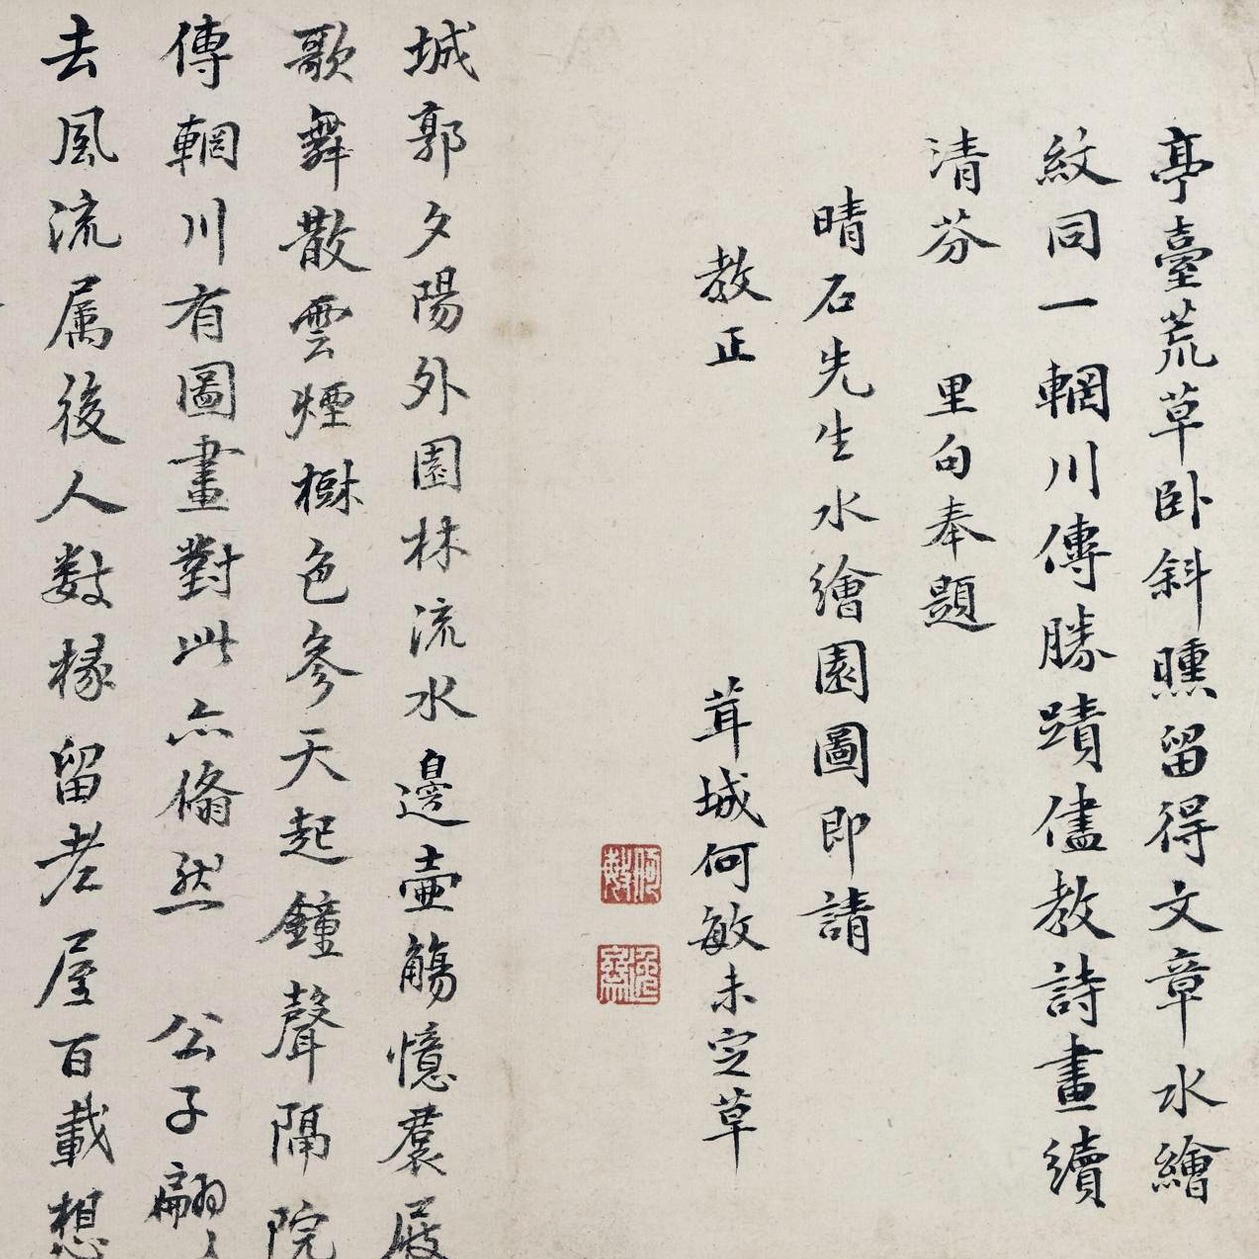 亭臺荒草卧斜曛留得文章水繪
紋同一輞川傳勝蹟儘教詩畫續
清芬　里句奉題
晴石先生水繪園圖即請
教正
茸城何敏未定草
城郭夕陽外園林流水邊壺觴憶裙屐
歌舞散雲煙樹色參天起鐘聲隔院
傳輞川有圖畫對此亦翛然　公子翩
去風流属後人数椽留老屋百載想